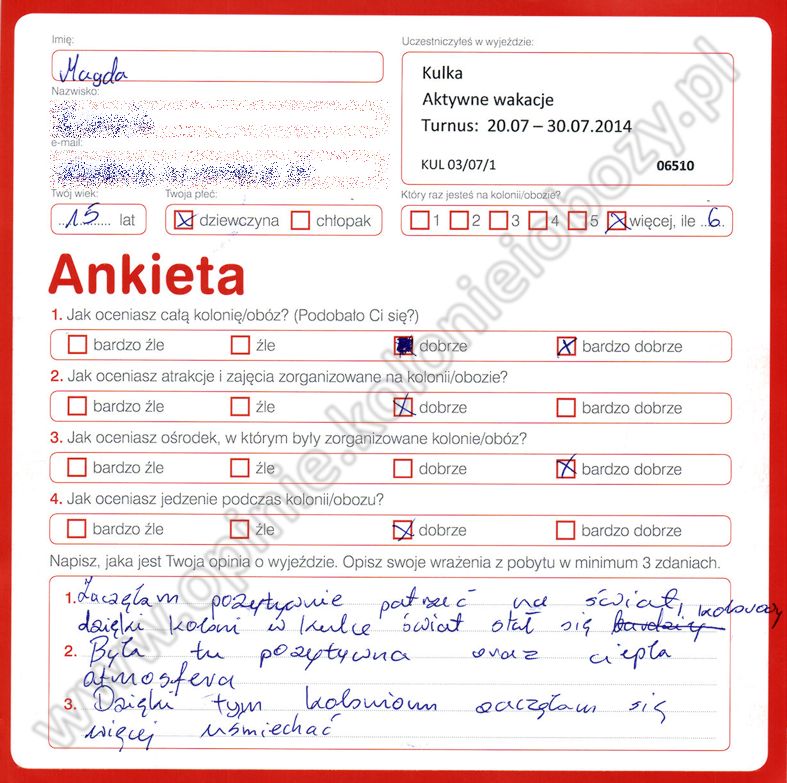 Imię:
Magda
Nazwisko:
e-mail:
Twój wiek:
15 lat
Twoja płeć:
dziewczyna chłopak
Uczestniczyłeś w wyjeździe:
Kulka
Aktywne wakacje
Turnus: 20.07 – 30.07.2014
KUL 03/07/1 06510
Który raz jesteś na kolonii/obozie?
1 2 3 4 5 więcej, ile ..6..
Ankieta
1. Jak oceniasz całą kolonię/obóz? (Podobało Ci się?)
bardzo źle źle dobrze bardzo dobrze
2. Jak oceniasz atrakcje i zajęcia zorganizowane na kolonii/obozie?
bardzo źle źle dobrze bardzo dobrze
3. Jak oceniasz ośrodek, w którym były zorganizowane kolonie/obóz?
bardzo źle źle dobrze bardzo dobrze
4. Jak oceniasz jedzenie podczas kolonii/obozu?
bardzo źle źle dobrze bardzo dobrze
Napisz, jaka jest Twoja opinia o wyjeździe. Opisz swoje wrażenia z pobytu w minimum 3 zdaniach.
1. Zaczęłam pozytywnie patrzeć na świat,
dzięki koloni w kulce świat stał się bardziej kolorowy
2. Była tu pozytywna oraz ciepła
atmosfera
3. Dzięki tym koloniom zaczęłam się
więcej uśmiechać
www.opinie.kolonieiobozy.pl